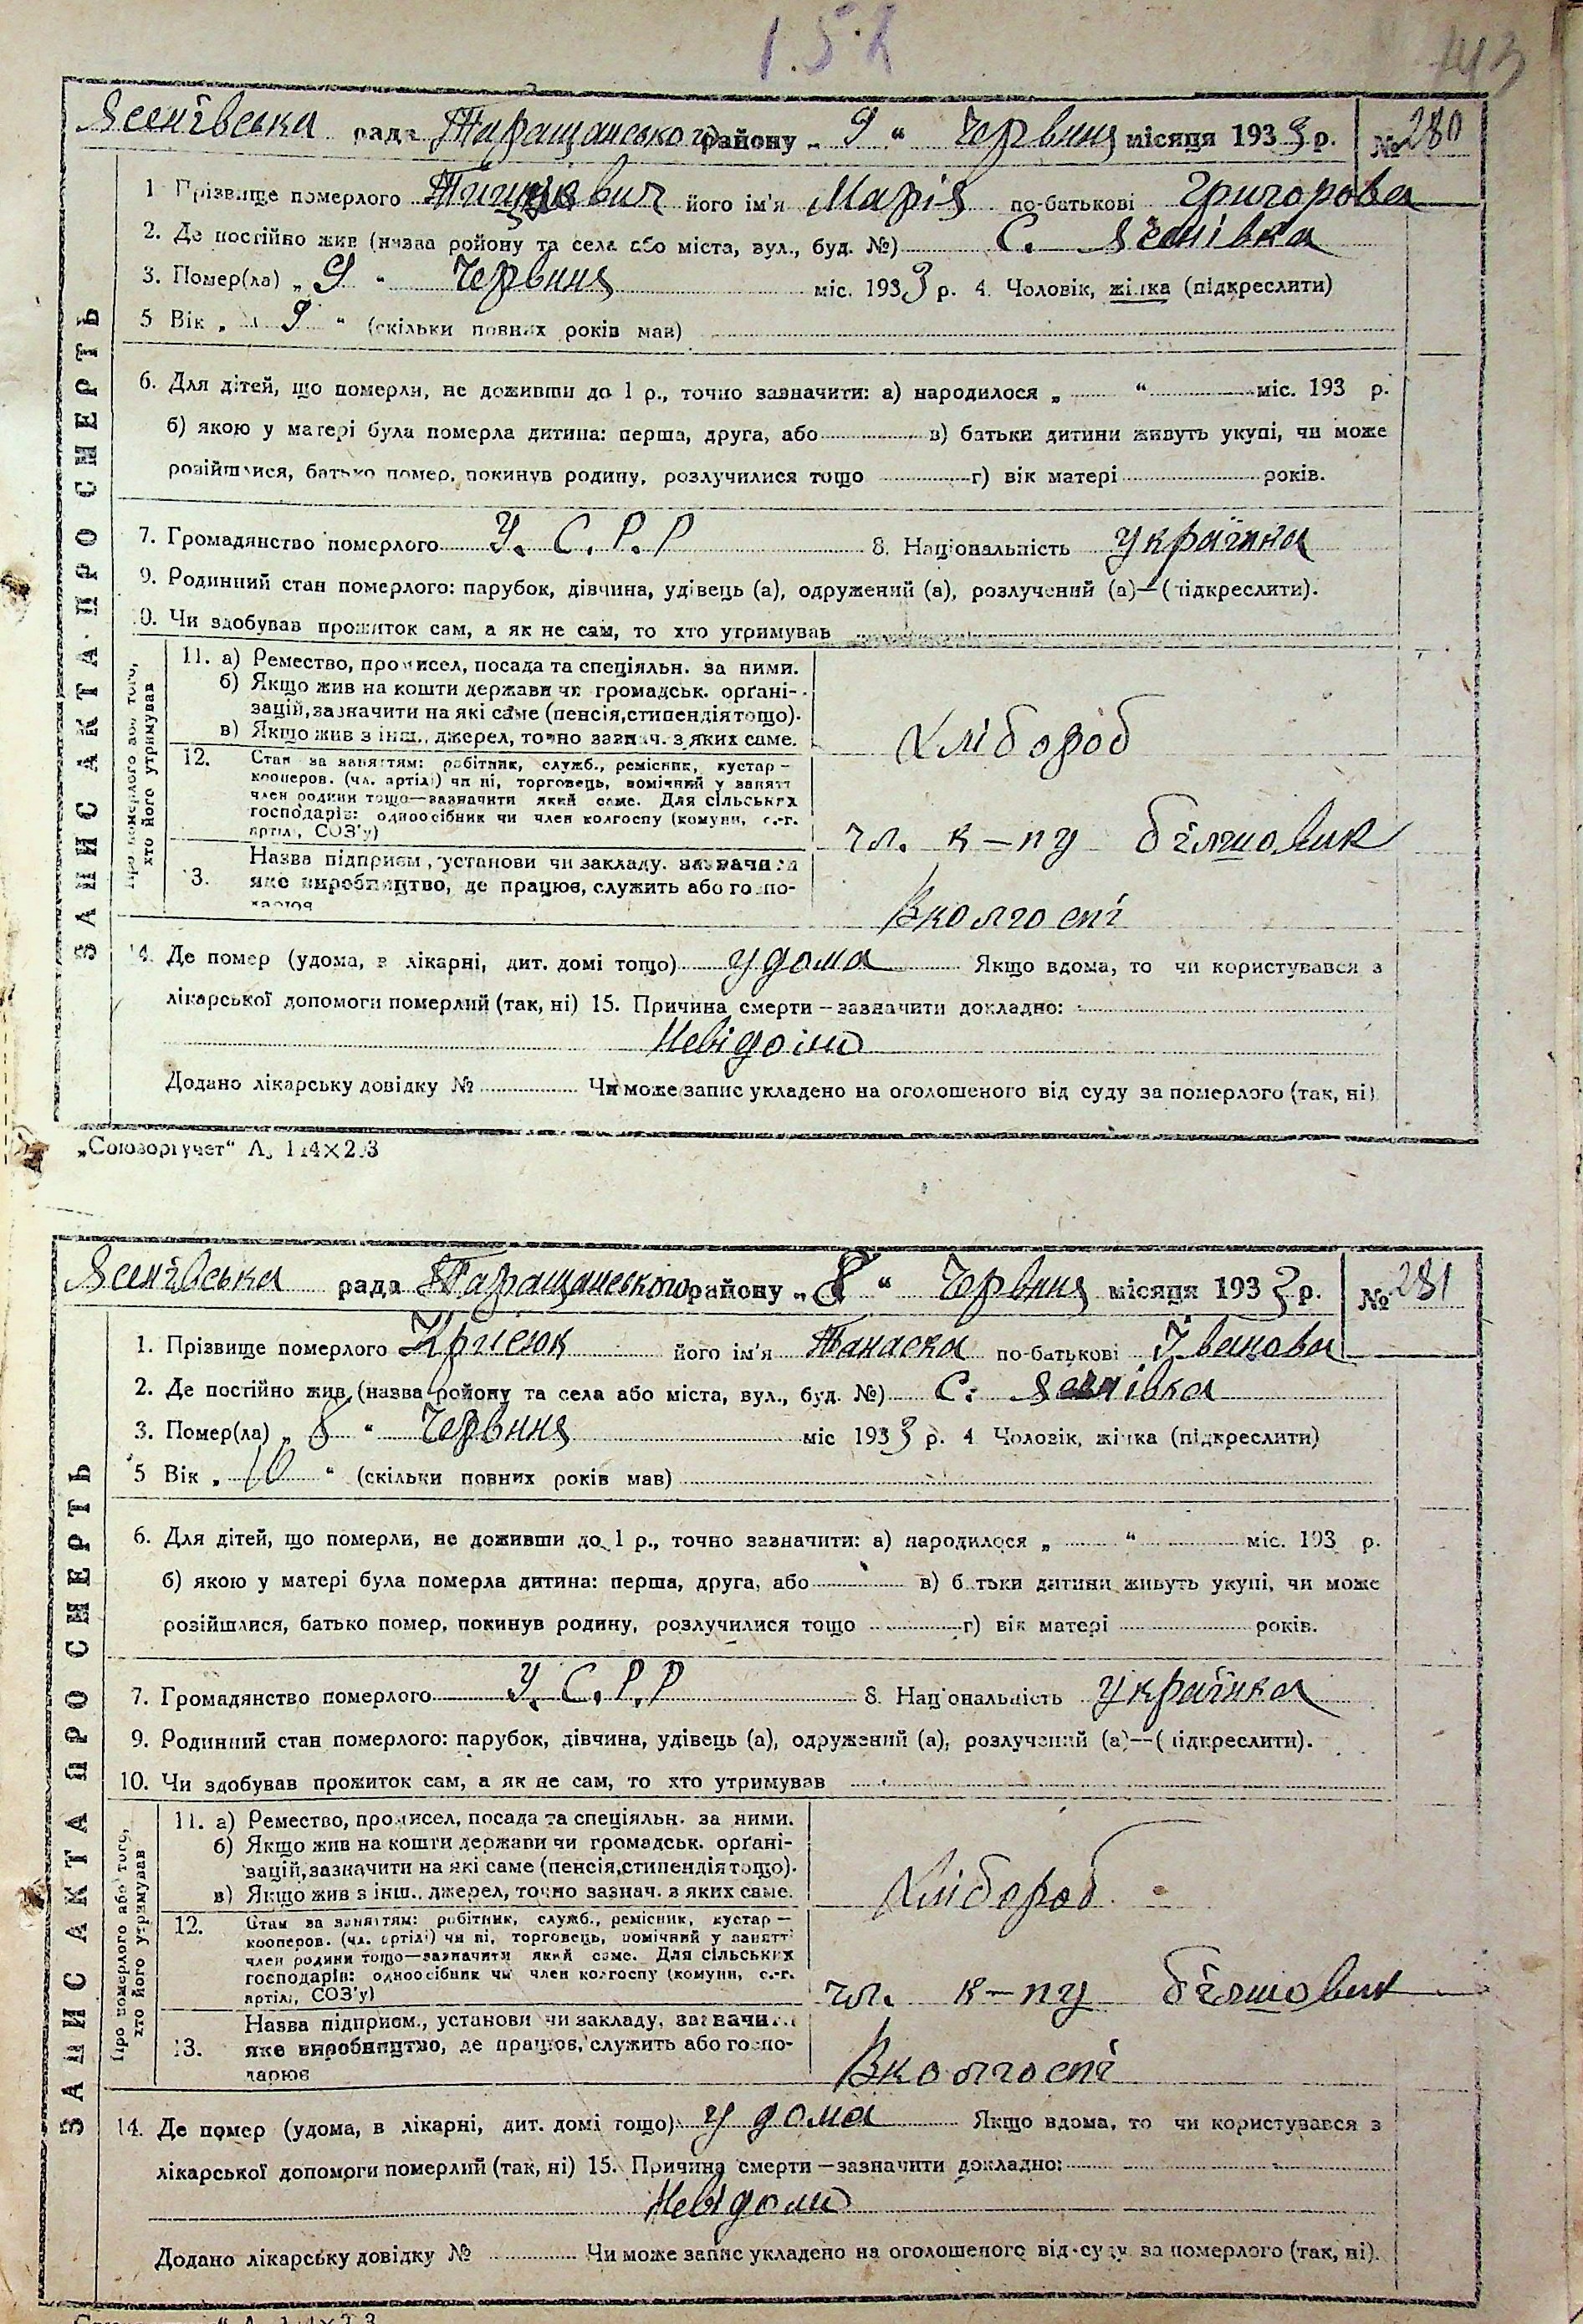 1.52
143
Ясенівська рада Таращанського району „ 9 “ Червня місяця 1933 р. № 280
1 Прізвище померлого його ім'я Марія по-батькові Григорова
2. Де постійно жив (назва ройону та села або міста, вул., буд. №) С. Ясенівка
3. Помер(ла) „ 9 “ Червння міс. 1933 р. 4. Чоловік, жінка (підкреслити)
5 Вік „ 9 “ (скільки повних років мав)
6. Для дітей, що померли, не доживши до 1 р., точно зазначити: а) народилося „ “ міс. 193 р.
б) якою у матері була померла дитина: перша, друга, або в) батьки дитини живуть укупі, чи може
розійшлися, батько помер, покинув родину, розлучилися тощо г) вік матері років.
7. Громадянство померлого У. С. Р. Р 8. Національність українка
9. Родинний стан померлого: парубок, дівчина, удівець (а), одружений (а), розлучений (а)—(підкреслити).
0. Чи здобував прожиток сам, а як не сам, то хто утримував
ЗАПИС АКТА ПРО СМЕРТЬ
Про померлого або того,
хто його утримував
11. а) Ремество, промисел, посада та спеціяльн. за ними.
б) Якщо жив на кошти держави чи громадськ. органі-
зацій, зазначити на які саме (пенсія, стипендія тощо).
в) Якщо жив з інш., джерел, точно зазнач. з яких саме.
Хлібороб
12. Стан за заняттям: робітник, служб., ремісник, кустар —
кооперов. (чл. артілі) чи ні, торговець, помічний у занятт
член родини тощо—зазначити який саме. Для сільських
господарів: одноосібник чи член колгоспу (комуни, с.-г.
артілі, СОЗ'у)
чл. к-пу більшовик
Назва підприєм., установи чи закладу, зазначити
13. яке виробництво, де працює, служить або госпо-
дарює
В колгоспі
14. Де помер (удома, в лікарні, дит. домі тощо) у дома Якщо вдома, то чи користувався з
лікарської допомоги померлий (так, ні) 15. Причина смерти — зазначити докладно:
Невідомо
Додано лікарську довідку № Чи може запис укладено на оголошеного від суду за померлого (так, ні)
„Союзоргучет“ А
Ясенівська рада Таращанського району „ 8 “ Червня місяця 1933 р. № 281
1. Прізвище померлого його ім'я Танаска по-батькові Іванова
2. Де постійно жив (назва ройону та села або міста, вул., буд. №) С. Ясенівка
3. Помер(ла) „ 8 “ Червння міс 1933 р. 4 Чоловік, жінка (підкреслити)
5 Вік „ 10 “ (скільки повних років мав)
6. Для дітей, що померли, не доживши до 1 р., точно зазначити: а) народилося „ “ міс. 193 р.
б) якою у матері була померла дитина: перша, друга, або в) батьки дитини живуть укупі, чи може
розійшлися, батько помер, покинув родину, розлучилися тощо г) вік матері років.
7. Громадянство померлого У. С. Р. Р 8. Національність українка
9. Родинний стан померлого: парубок, дівчина, удівець (а), одружений (а), розлучений (а)—(підкреслити).
10. Чи здобував прожиток сам, а як не сам, то хто утримував
ЗАПИС АКТА ПРО СМЕРТЬ
Про померлого або того,
хто його утримував
11. а) Ремество, промисел, посада та спеціяльн. за ними.
б) Якщо жив на кошти держави чи громадськ. органі-
зацій, зазначити на які саме (пенсія, стипендія тощо).
в) Якщо жив з інш., джерел, точно зазнач. з яких саме.
Хлібороб
12. Стан за заняттям: робітник, служб., ремісник, кустар —
кооперов. (чл. артілі) чи ні, торговець, помічний у занятт
член родини тощо—зазначити який саме. Для сільських
господарів: одноосібник чи член колгоспу (комуни, с.-г.
артілі, СОЗ'у)
чл. к-пу більшовик
Назва підприєм., установи чи закладу, зазначити
13. яке виробництво, де працює, служить або госпо-
дарює
В колгоспі
14. Де помер (удома, в лікарні, дит. домі тощо) у дома Якщо вдома, то чи користувався з
лікарської допомоги померлий (так, ні) 15. Причина смерти — зазначити докладно:
Невідомо
Додано лікарську довідку № Чи може запис укладено на оголошеного від суду за померлого (так, ні).